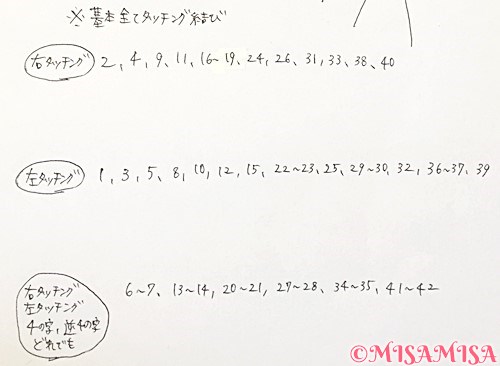 ※ 基本全てタッチング結び
右タッチング 2, 4, 9、11, 16～19、24, 26、31, 33、38、40
左タッチング 1, 3, 5、8, 10, 12, 15、22～23、25、29～30、32, 36～37、39
右タッチング
左タッチング
4の字, 逆4の字
どれでも
6～7、13～14, 20～21, 27～28、34～35, 41～42
©MISAMISA